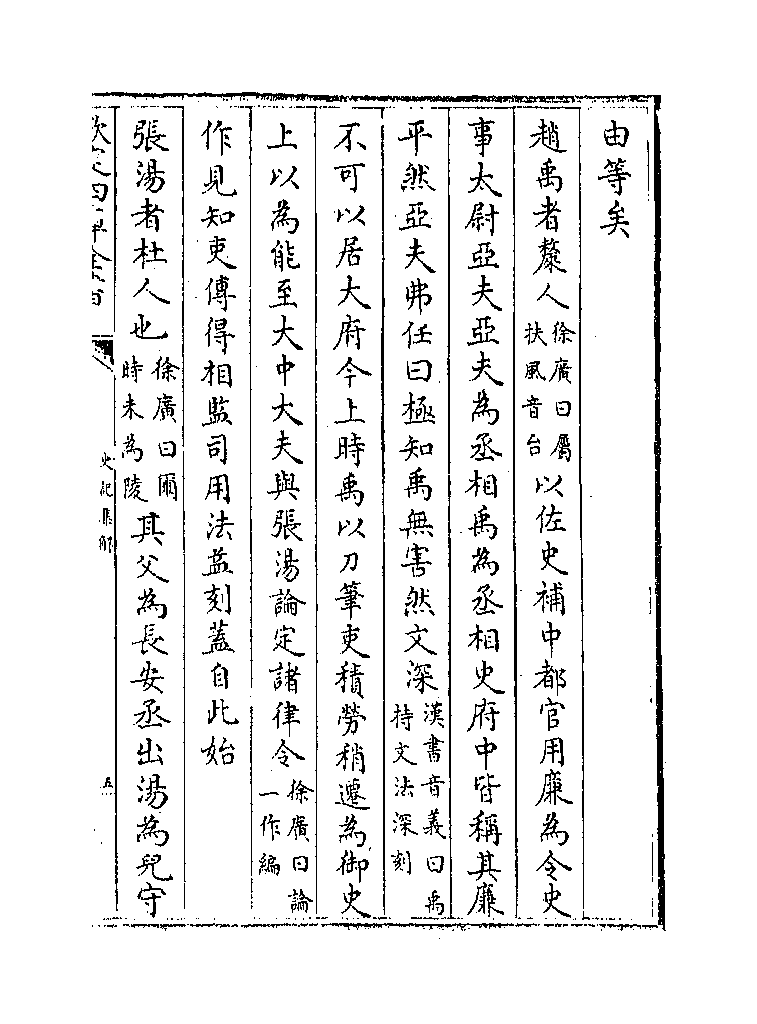 由等矣
趙禹者斄人徐廣曰屬扶風音台以佐史補中都官用廉為令史
事太尉亞夫亞夫為丞相禹為丞相史府中皆稱其廉
平然亞夫弗任曰極知禹無害然文深漢書音義曰禹持文法深刻
不可以居大府今上時禹以刀筆吏積勞稍遷為御史
上以為能至大中大夫與張湯論定諸律令徐廣曰論一作編
作見知吏傳得相監司用法益刻蓋自此始
張湯者杜人也徐廣曰爾時未為陵其父為長安丞出湯為兒守
史記集解
五